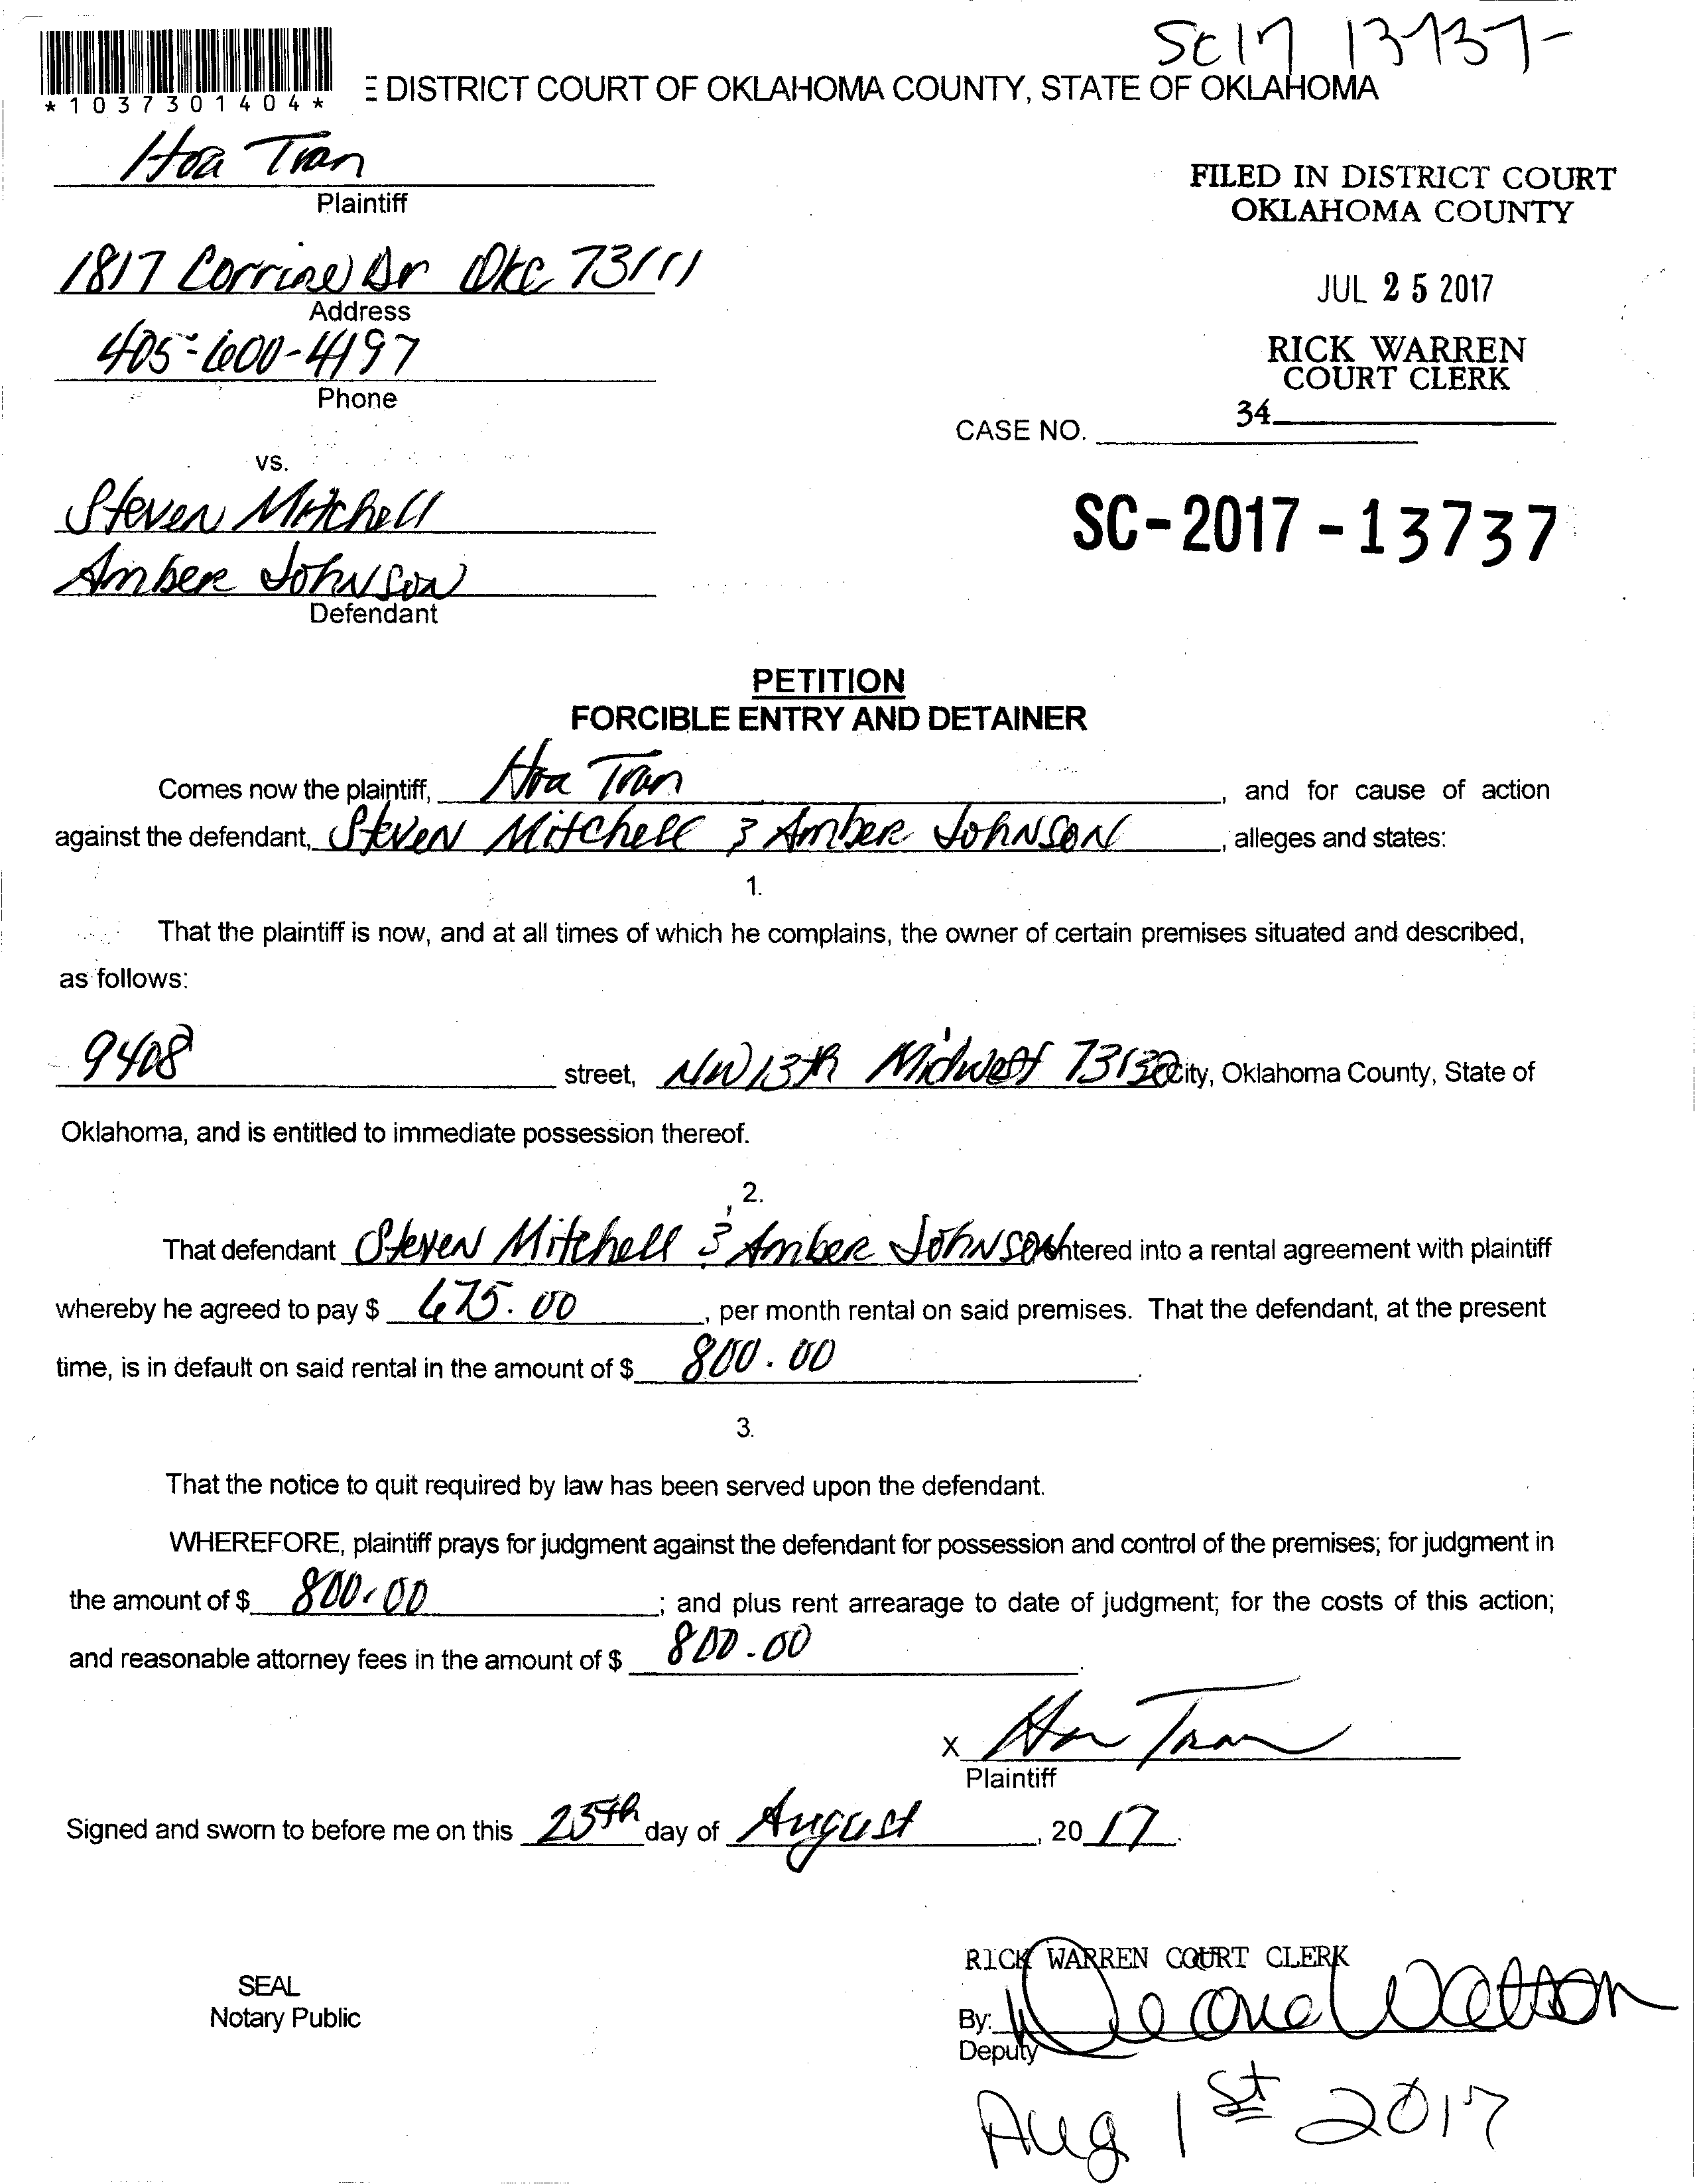 SC17 13737-
*1037301404*
E DISTRICT COURT OF OKLAHOMA COUNTY, STATE OF OKLAHOMA
Hoa Tran
Plaintiff
FILED IN DISTRICT COURT
OKLAHOMA COUNTY
1817 Corrine Dr Okc 73111
Address
JUL 25 2017
405-600-4197
Phone
RICK WARREN
COURT CLERK
34
CASE NO.
vs.
Steven Mitchell
SC-2017-13737
Amber Johnson
Defendant
PETITION
FORCIBLE ENTRY AND DETAINER
Comes now the plaintiff, Hoa Tran, and for cause of action
against the defendant, Steven Mitchell & Amber Johnson, alleges and states:
1.
That the plaintiff is now, and at all times of which he complains, the owner of certain premises situated and described,
as follows:
9408 street, NW 13th Midwest 73130 City, Oklahoma County, State of
Oklahoma, and is entitled to immediate possession thereof.
2.
That defendant Steven Mitchell & Amber Johnson entered into a rental agreement with plaintiff
whereby he agreed to pay $ 675.00, per month rental on said premises. That the defendant, at the present
time, is in default on said rental in the amount of $ 800.00.
3.
That the notice to quit required by law has been served upon the defendant.
WHEREFORE, plaintiff prays for judgment against the defendant for possession and control of the premises; for judgment in
the amount of $ 800.00; and plus rent arrearage to date of judgment; for the costs of this action;
and reasonable attorney fees in the amount of $ 800.00.
X Hoa Tran
Plaintiff
Signed and sworn to before me on this 25th day of August, 2017.
RICK WARREN COURT CLERK
SEAL
Notary Public
By: Watson
Deputy
Aug 1st 2017